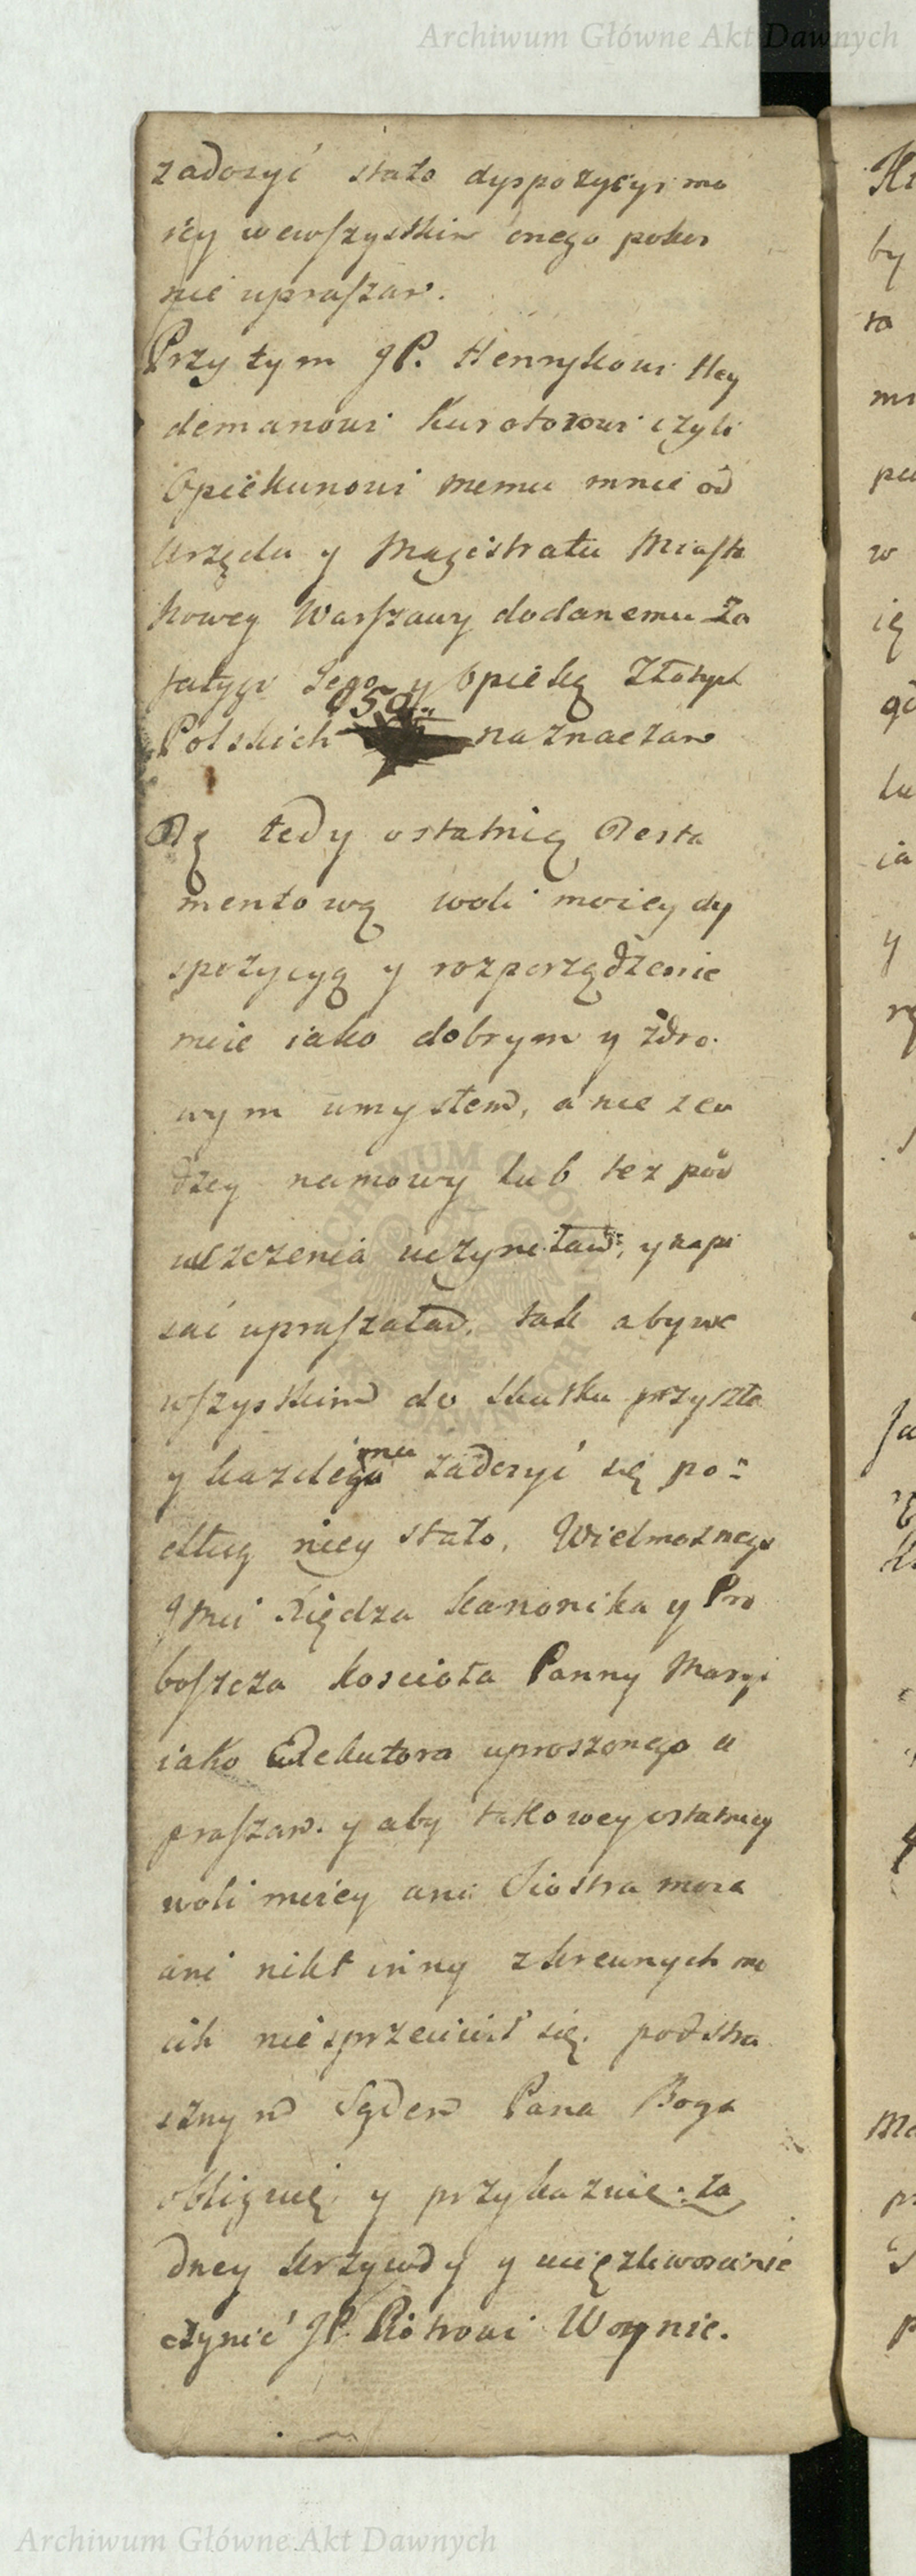 Archiwum Główne Akt Dawnych
zadosyć stało dyspozycyi mo
iey wewszystkim onego pokor
nie upraszam.
Przy tym JP. Henrykowi Hey
demanowi Kuratorowi czyli
Opiekunowi memu mnie od
Urzędu y Magistratu Miasta
Nowey Warszawy dodanemu Za
fatygę Jego y Opiekę Złotych
Polskich 50 naznaczam
Tę tedy ostatnią Testa
mentową woli moiey dy
spozycyą y rozporządzenie
moie iako dobrym y zdro
wym umysłem, a nie z cu
dzey namowy lub tez pod
uszczenia uczyniłam, y napi
sać upraszałam, tak aby we
wszystkim do skutku przyszła
y kazdemu zadosyć się po=
dług niey stało. Wielmoznego
JMci Xiędza Kanonika y Pro
boszcza Koscioła Panny Maryi
iako Exekutora uproszonego u
praszam y aby takowey ostatniey
woli moiey ani Siostra moia
ani nikt inny z krewnych mo
ich niesprzeciwił się. pod stra
sznym Sądem Pana Boga
obliguię y przykazuię. Za
dney krzywdy y uciązliwosci nie
czynić JP. Piotrowi Woynie.
ARCHIWUM GŁÓWNE AKT DAWNYCH
Archiwum Główne Akt Dawnych